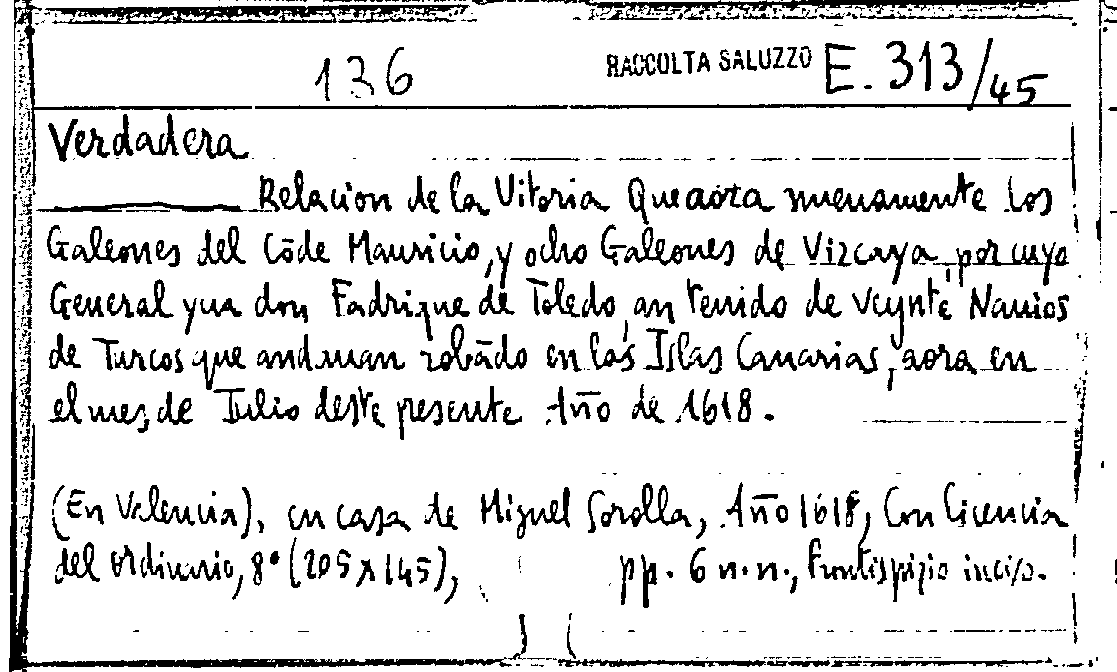 136
RACCOLTA SALUZZO E. 313/45
Verdadera
Relacion de la Vitoria Que aora nueuamente los
Galeones del Cõde Mauricio, y ocho Galeones de Vizcaya, por cuyo
General yua don Fadrique de Toledo, an tenido de veynte Nauios
de Turcos que andauan robãdo en las Islas Canarias, aora en
el mes, de Iulio deste pesente Año de 1618.
(En Valencia), en casa de Miguel Sorolla, Año 1618, Con licencia
del ordinario, 8° (205 x 145), pp. 6 n.n., frontispizio inciso.